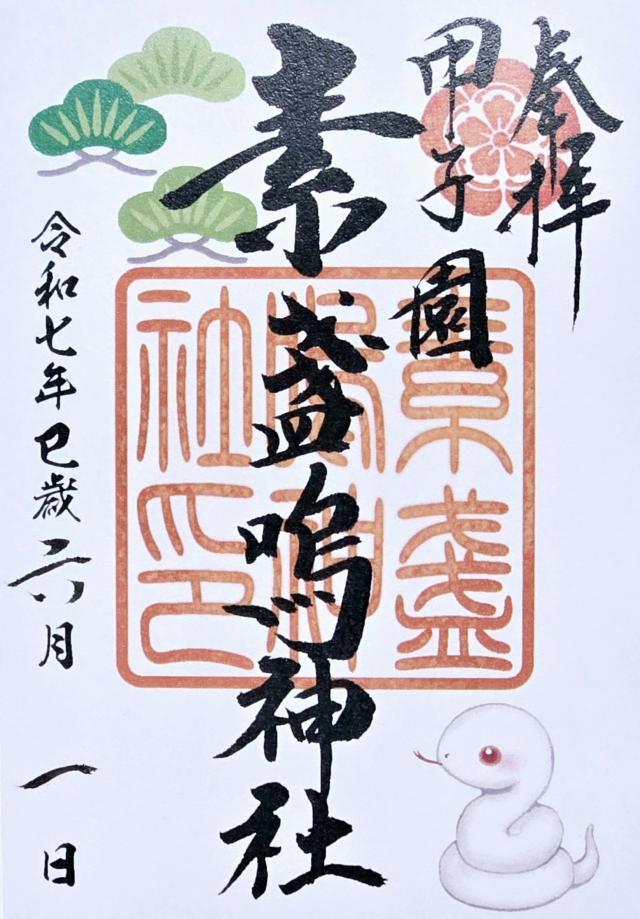 奉拝
甲子園
素盞嗚神社
素盞
嗚神
社印
令和七年巳歳六月一日